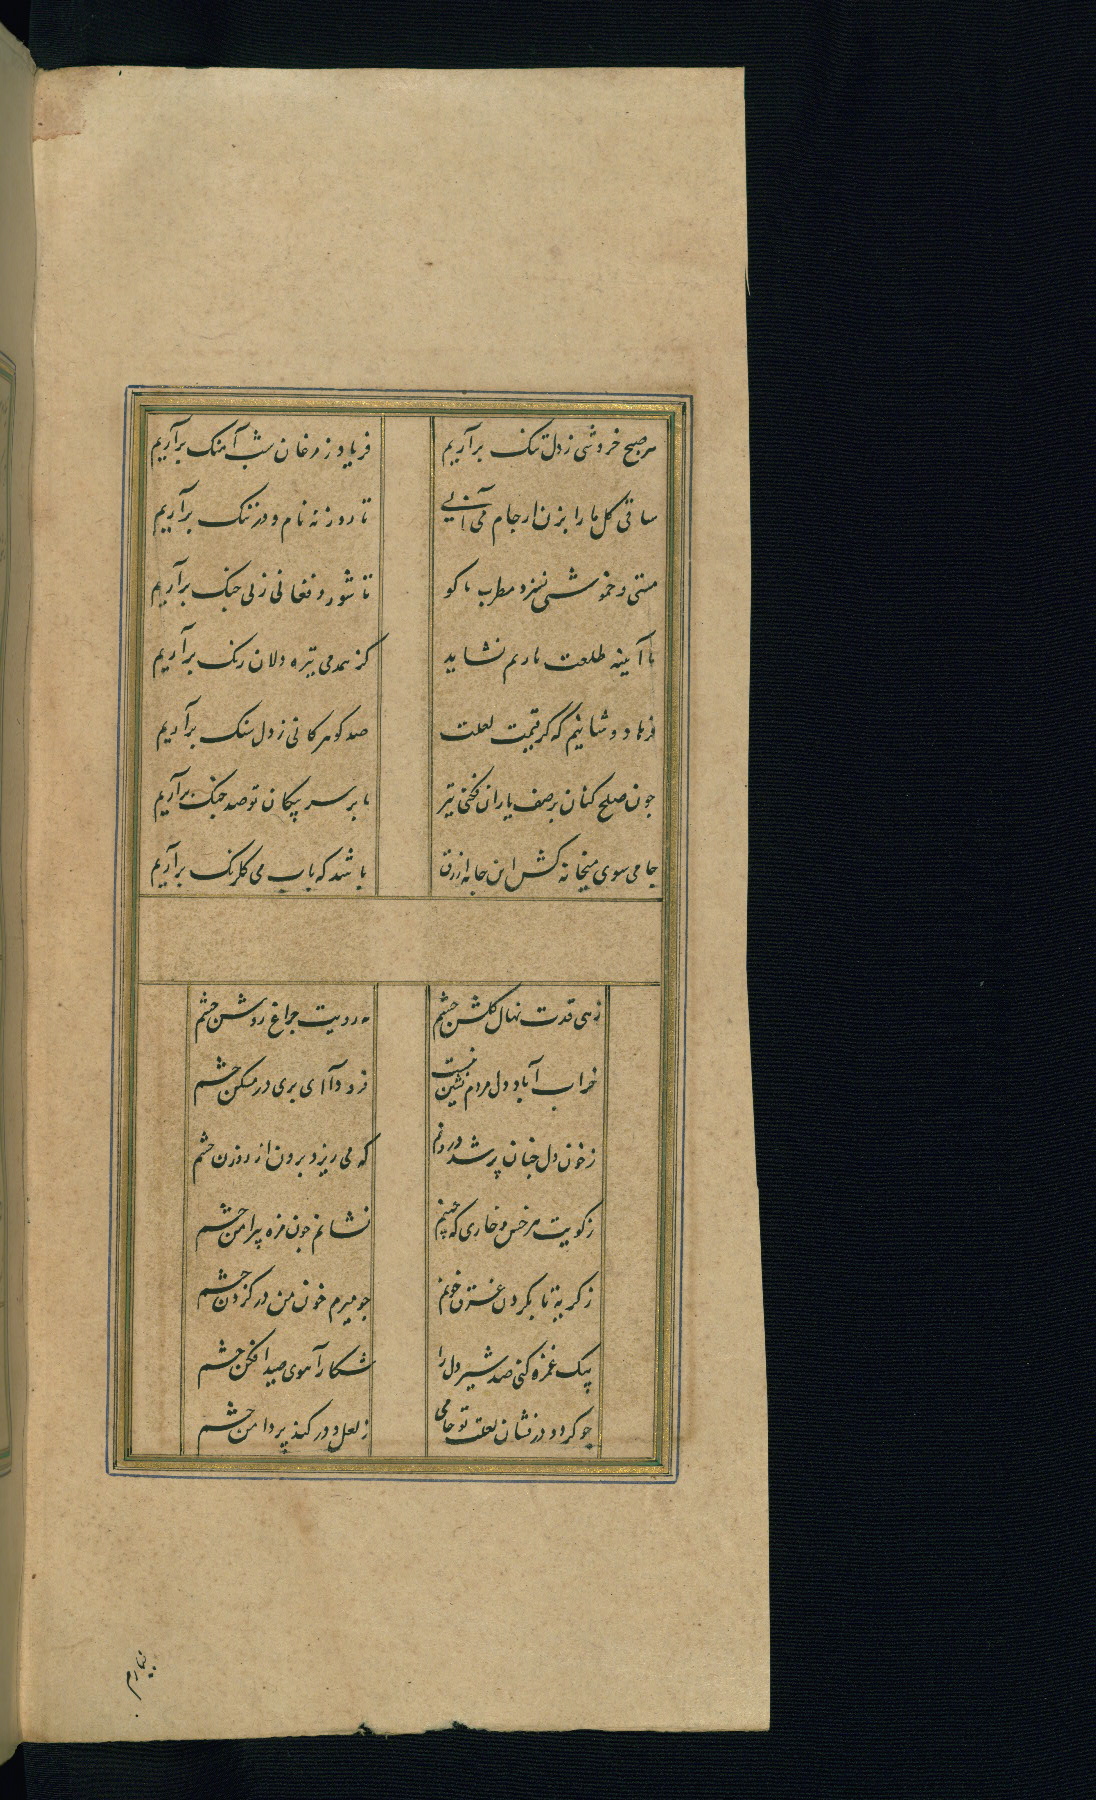 هر صبح خروشی ز دل تنک برآریم
فریاد ز مرغان شب آهنک برآریم
ساقی کل ما را بزن از جام می آبی
تا روزنه نام و در ننک برآریم
مستی و خموشی نسزد مطرب ما کو
تا شور و فغانی ز نی و چنک برآریم
با آیینه طلعت یاریم نشاید
کز همدمی تیره دلان رنک برآریم
فرهاد وشانیم که کر قیمت لعلت
صد کوهر کانی ز دل سنک برآریم
چون صلح کنان بر صف یاران فکنی تیر
ما بر سر پیکان تو صد جنک برآریم
جامی سوی میخانه کش این جامه ازرق
باشد که بآب می کلرنک برآریم
زهی قدت نهال کلشن چشم
مه رویت چراغ روشن چشم
خراب آباد دل مردم نشین نیست
فرود آ ای پری در مسکن چشم
ز خون دل چنان پر شد درونم
که می ریزد برون از روزن چشم
ز کویت هر خس و خاری که چینم
نشانم چون مژه پیرامن چشم
ز کریه تا بکردن غرق خونم
چو میرم خون من در کردن چشم
بیک غمزه کنی صد شیر دل را
شکار آهوی صید افکن چشم
چو کردد در فشان لعلت تو جامی
ز لعل و در کند پر دامن چشم